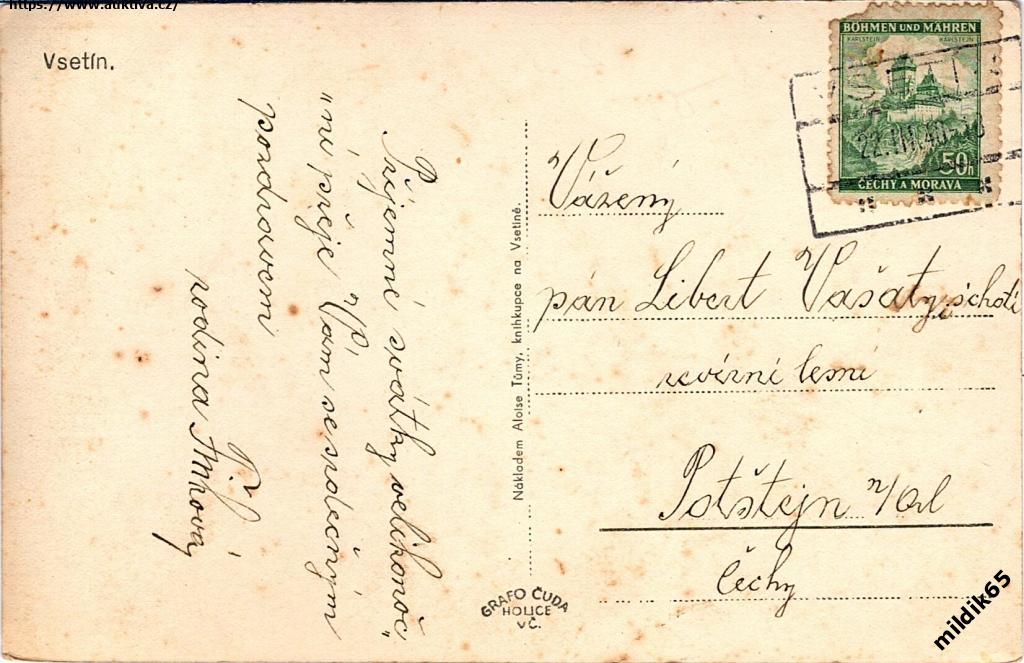 https://www.auktiva.cz/
Vsetín.
Příjemné svátky velikonoč„
"ní přeje Vám se spolećným
pozdravem
rodina
Nákladem Aloise Tůmy, knihkupce na Vsetíně.
GRAFO ČUDA
HOLICE
VČ.
BÖHMEN UND MÄHREN
KARLSTEIN KARLŠTEJN
50h
ČECHY A MORAVA
22.III.40
Vážený
pán Libert Vašatý, s chotí
revírní lesní
Potštejn n/Orl
Čechy
mildik65